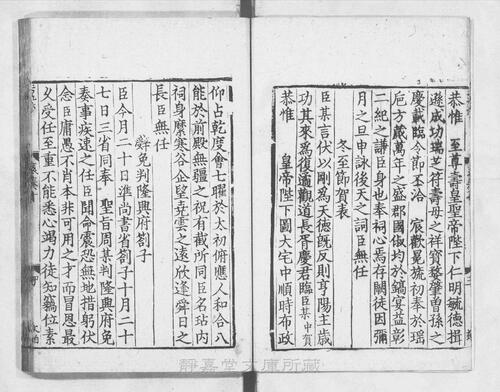 恭惟　至尊壽皇聖帝陛下仁明毓德揖
遜成功瑞芝符壽母之祥寶鼇肇曾孫之
慶載臨令節丕洽　宸歡晃旒初奉於瑶
卮方歲萬年之盛郡國俶均於鎬宴益彰
二紀之謙臣身也奉祠心焉存闕徒因彌
月之旦申詠後天之詞臣無任
冬至節賀表
臣某言伏以明爲天德旣反則亨陽主歳
功其來爲復適觀道長胥慶君臨臣某中賀
恭惟　皇帝陛下圖大宅中順時布政
仰占乾度會七曜於太初俯應人和合八
能於前殿無疆之祝有截所同臣名玷内
祠身縻寒谷企望堯雲之遠欣逢舜日之
長臣無任
辭免判隆興府劄子
臣今月二十日準尚書省劄子十月二十
七日三省同奉　聖旨周某判隆興府免
奏事疾速之任臣聞命震恐無地措躬伏
念臣庸愚不肖本非可用之才而冒恩最
乆受任至重不能悉心竭力徒知竊位素
靜嘉堂文庫所藏